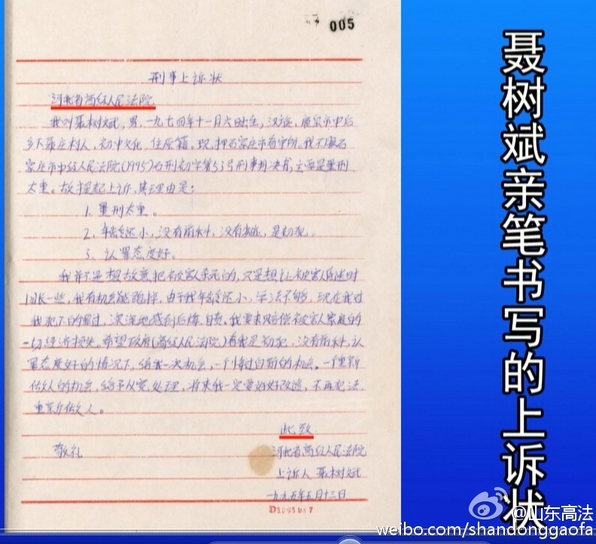 005
刑事上诉状
河北省高级人民法院
我叫聂树斌,男,一九七四年十一月六日出生,汉族,鹿泉市申后
乡下聂庄村人,初中文化,住原籍。现押石家庄市看守所,我不服石
家庄市中级人民法院(1995)石刑初字第53号刑事判决书,主要是量刑
太重。故提起上诉,其理由是:
1. 量刑太重。
2、年龄还小,没有前科,没有劣迹,是初犯。
3、认罪态度好。
我并不是想故意把被害人杀死的,只是想让被害人昏迷时
间长一些,我有机会能逃掉。由于我年龄还小,学法不够,现在我对
我犯下的罪过,深深地感到后悔、自责,我要来赔偿被害人家庭的
一切经济损失,希望政府(高级人民法院)看我是初犯,没有前科,认
罪态度好的情况下,给我一次机会,一个悔过自新的机会。一个重新
做人的机会,给予从宽处理,将来我一定要好好改造,不再犯法
重新做人。
此致
敬礼
河北省高级人民法院
上诉人 聂树斌
一九九五年五月十三日
聂树斌亲笔书写的上诉状
@山东高法
weibo.com/shandonggaofa